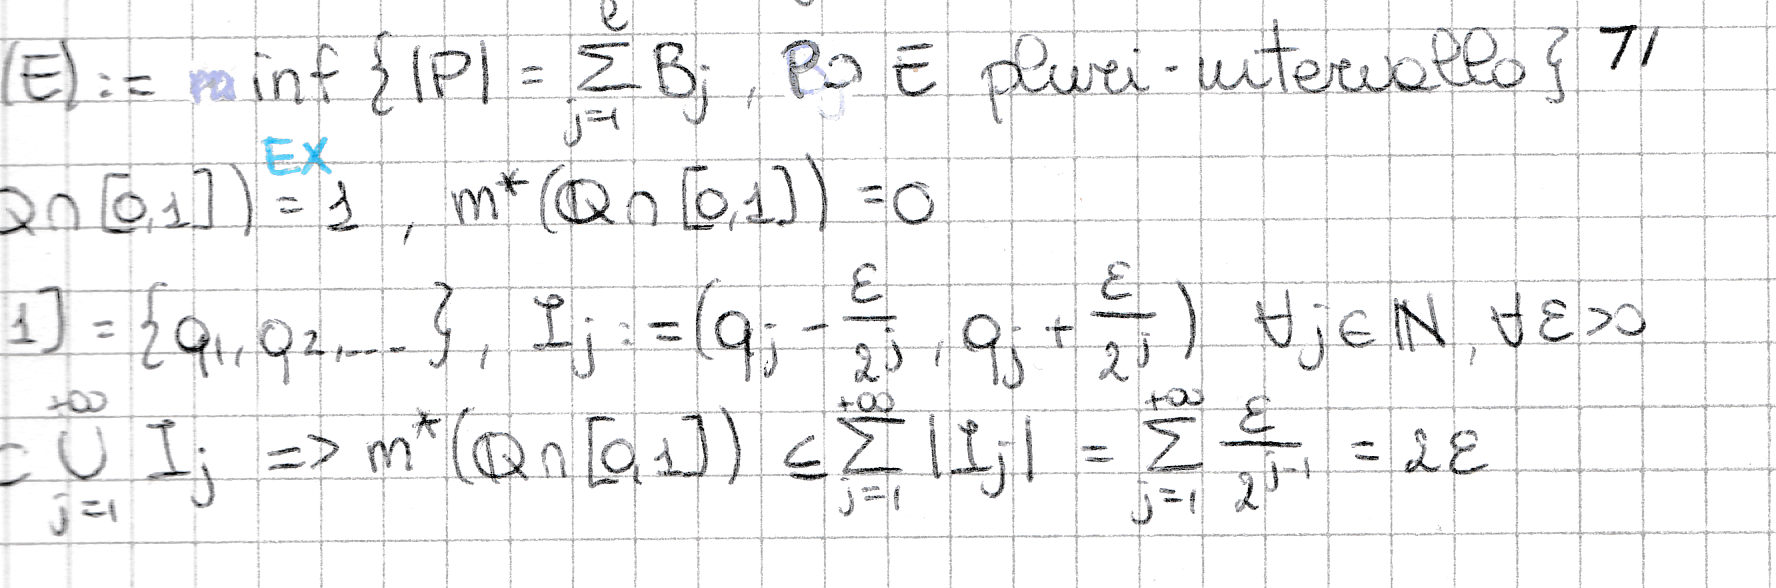 (E) := inf {|P| = ∑_{j=1}^{e} B_j, P ⊃ E pluri-intervallo} 71
EX
Q∩[0,1]) = 1, m*(Q∩[0,1]) = 0
1] = {q_1, q_2, ...}, I_j := (q_j - ε/2^j, q_j + ε/2^j) ∀j∈ℕ, ∀ε>0
⊂ ⋃_{j=1}^{+∞} I_j => m*(Q∩[0,1]) ≤ ∑_{j=1}^{+∞} |I_j| = ∑_{j=1}^{+∞} ε/2^{j-1} = 2ε